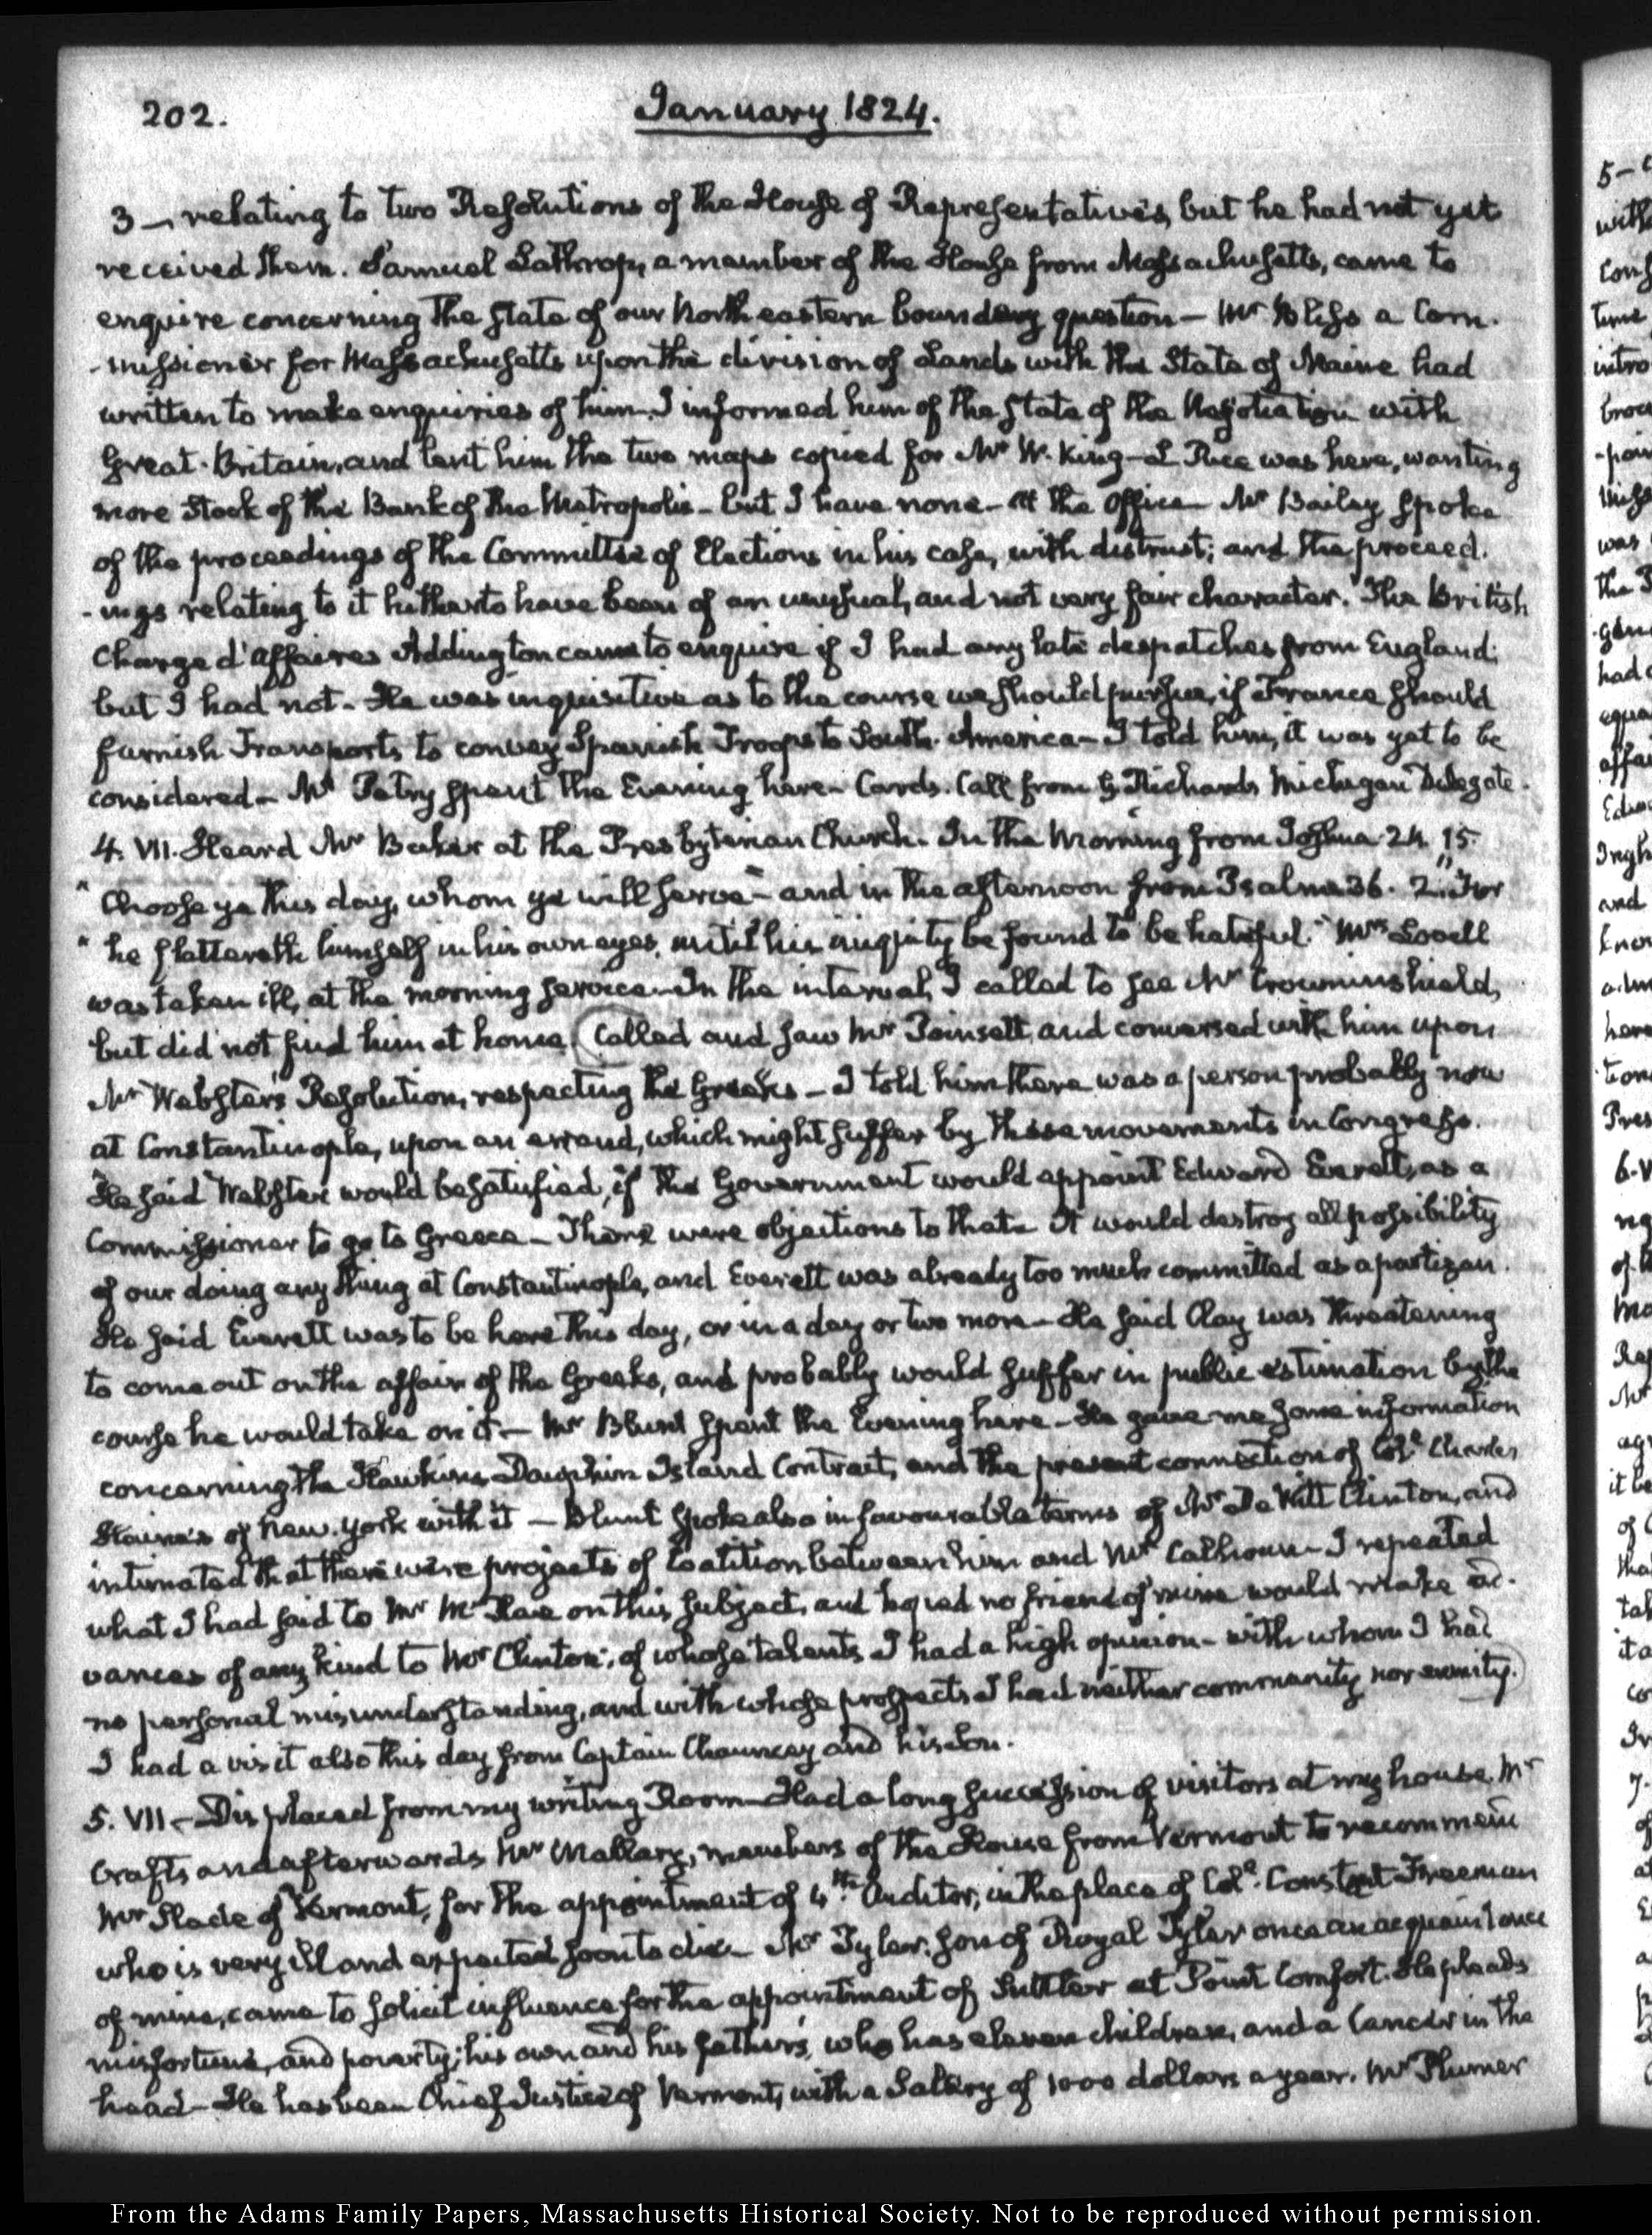 202.
January 1824.
3 — relating to two Resolutions of the House of Representatives, but he had not yet
received them. Samuel Lathrop, a member of the House from Massachusetts, came to
enquire concerning the state of our North eastern boundary question — Mr Bliss a Com-
-missioner for Massachusetts upon the division of Lands with the State of Maine had
written to make enquiries of him. I informed him of the state of the Negotiation with
Great-Britain, and lent him the two maps copied for Mr W. King — L Rice was here, wanting
more Stock of the Bank of the Metropolis — but I have none — At the Office Mr Bailey spoke
of the proceedings of the Committee of Elections in his case, with distrust; and the proceed-
-ings relating to it hitherto have been of an unusual, and not very fair character. The British
Chargé d'Affaires Addington came to enquire if I had any late despatches from England;
but I had not. He was inquisitive as to the course we should pursue, if France should
furnish Transports to convey Spanish Troops to South-America — I told him, it was yet to be
considered — Mr Petry spent the Evening here. Cards. Call from G Richards Michigan Delegate.
4. VII. Heard Mr Baker at the Presbyterian Church. In the Morning from Joshua 24. 15.
"Choose ye this day, whom ye will serve" — and in the afternoon from Psalms 36. 2. "For
"he flattereth himself in his own eyes, until his iniquity be found to be hateful." Mrs Lovell
was taken ill, at the morning service. In the interval, I called to see Mr Crowninshield,
but did not find him at home. (Called and saw Mr Poinsett, and conversed with him upon
Mr Webster's Resolution, respecting the Greeks — I told him there was a person probably now
at Constantinople, upon an errand, which might suffer by these movements in Congress.
He said Webster would be satisfied, if the Government would appoint Edward Everett, as a
Commissioner to go to Greece — There were objections to that. It would destroy all possibility
of our doing any thing at Constantinople, and Everett was already too much committed as a partizan.
He said Everett was to be here this day, or in a day or two more — He said Clay was threatening
to come out on the affair of the Greeks, and probably would suffer in public estimation by the
course he would take on it — Mr Blunt spent the Evening here — He gave me some information
concerning the Hawkins Dauphin Island Contract, and the present connection of Col. Charles
Haines of New-York with it — Blunt spoke also in favourable terms of Mr De Witt Clinton, and
intimated that there were projects of Coalition between him and Mr Calhoun — I repeated
what I had said to Mr McRae on this subject, and hoped no friend of mine would make ad-
vances of any kind to Mr Clinton; of whose talents I had a high opinion — with whom I had
no personal misunderstanding, and with whose prospects I had neither community nor enmity.)
I had a visit also this day from Captain Chauncey and his Son.
5. VII — Displaced from my writing Room — Had a long succession of visitors at my house. Mr
Crafts and afterwards Mr Mallary, members of the House from Vermont to recommend
Mr Slade of Vermont, for the appointment of 4th Auditor, in the place of Col. Constant Freeman
who is very ill and expected soon to die — Mr Tyler, son of Royal Tyler once an acquaintance
of mine, came to solicit influence for the appointment of Suttler at Point Comfort. He pleads
misfortune, and poverty; his own and his father's, who has eleven children, and a Cancer in the
head — He has been Chief Justice of Vermont, with a Salary of 1000 dollars a year. Mr Plumer
From the Adams Family Papers, Massachusetts Historical Society. Not to be reproduced without permission.